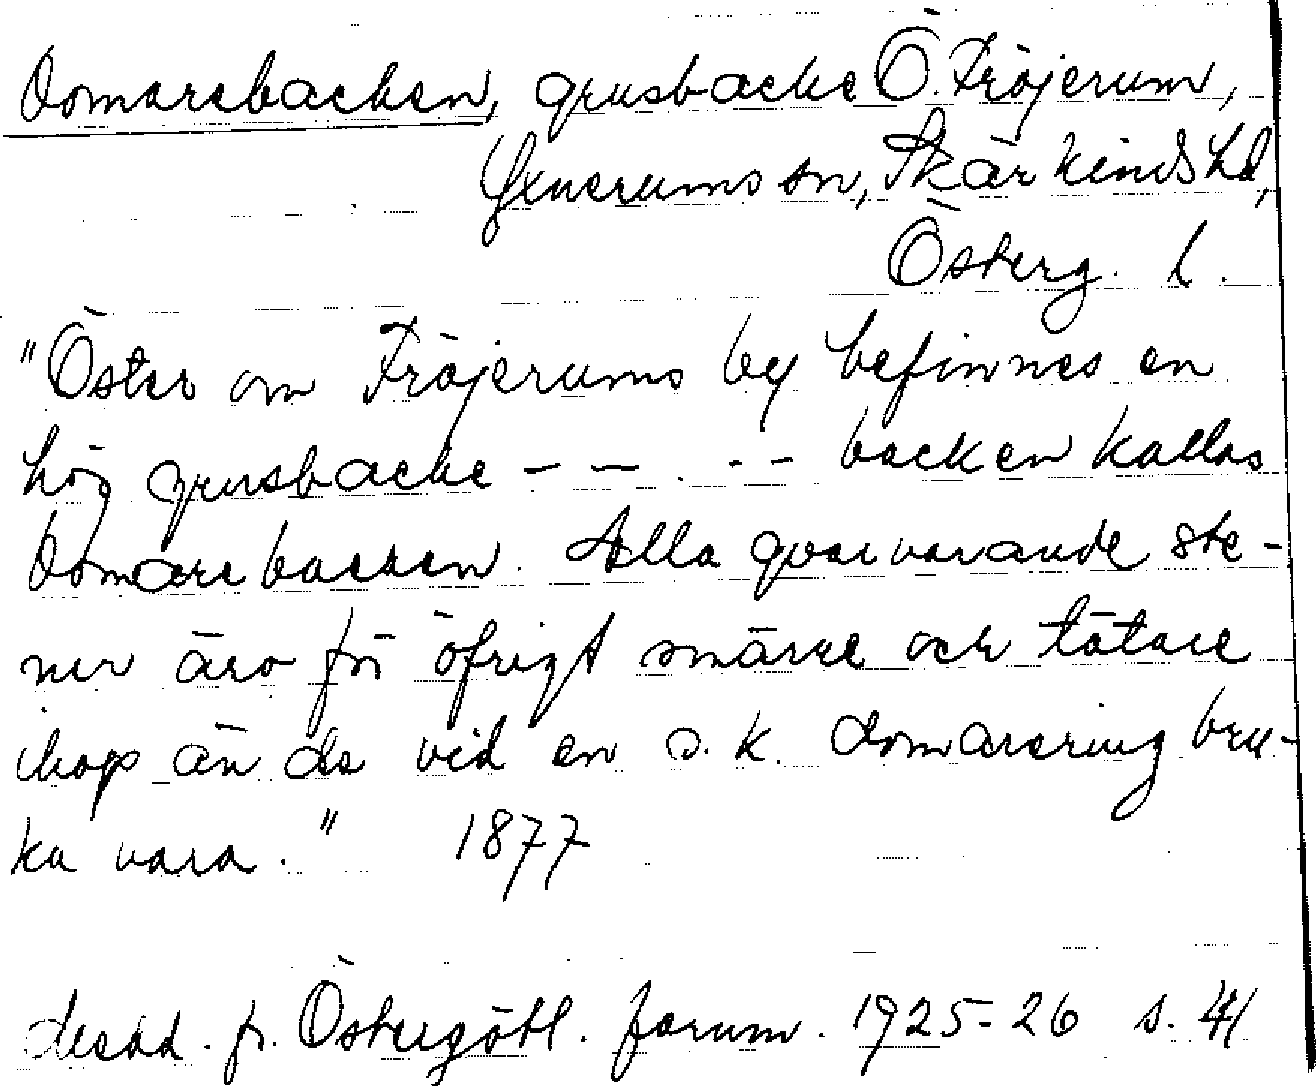 Domarebacken, grusbacke Ö. Fröjerum,
Gruerums sn, Skärkinds hd,
Österg. l.
"Öster om Fröjerums by befinnes en
hög grusbacke - - - - backen kallas
Domarebacken. Alla qvarvarande ste-
nar äro för öfrigt smärre och tätare
ihop än de vid en s.k. domarering bru-
ka vara." 1877
Medd. fr. Östergötl. fornm. 1925-26 s. 41